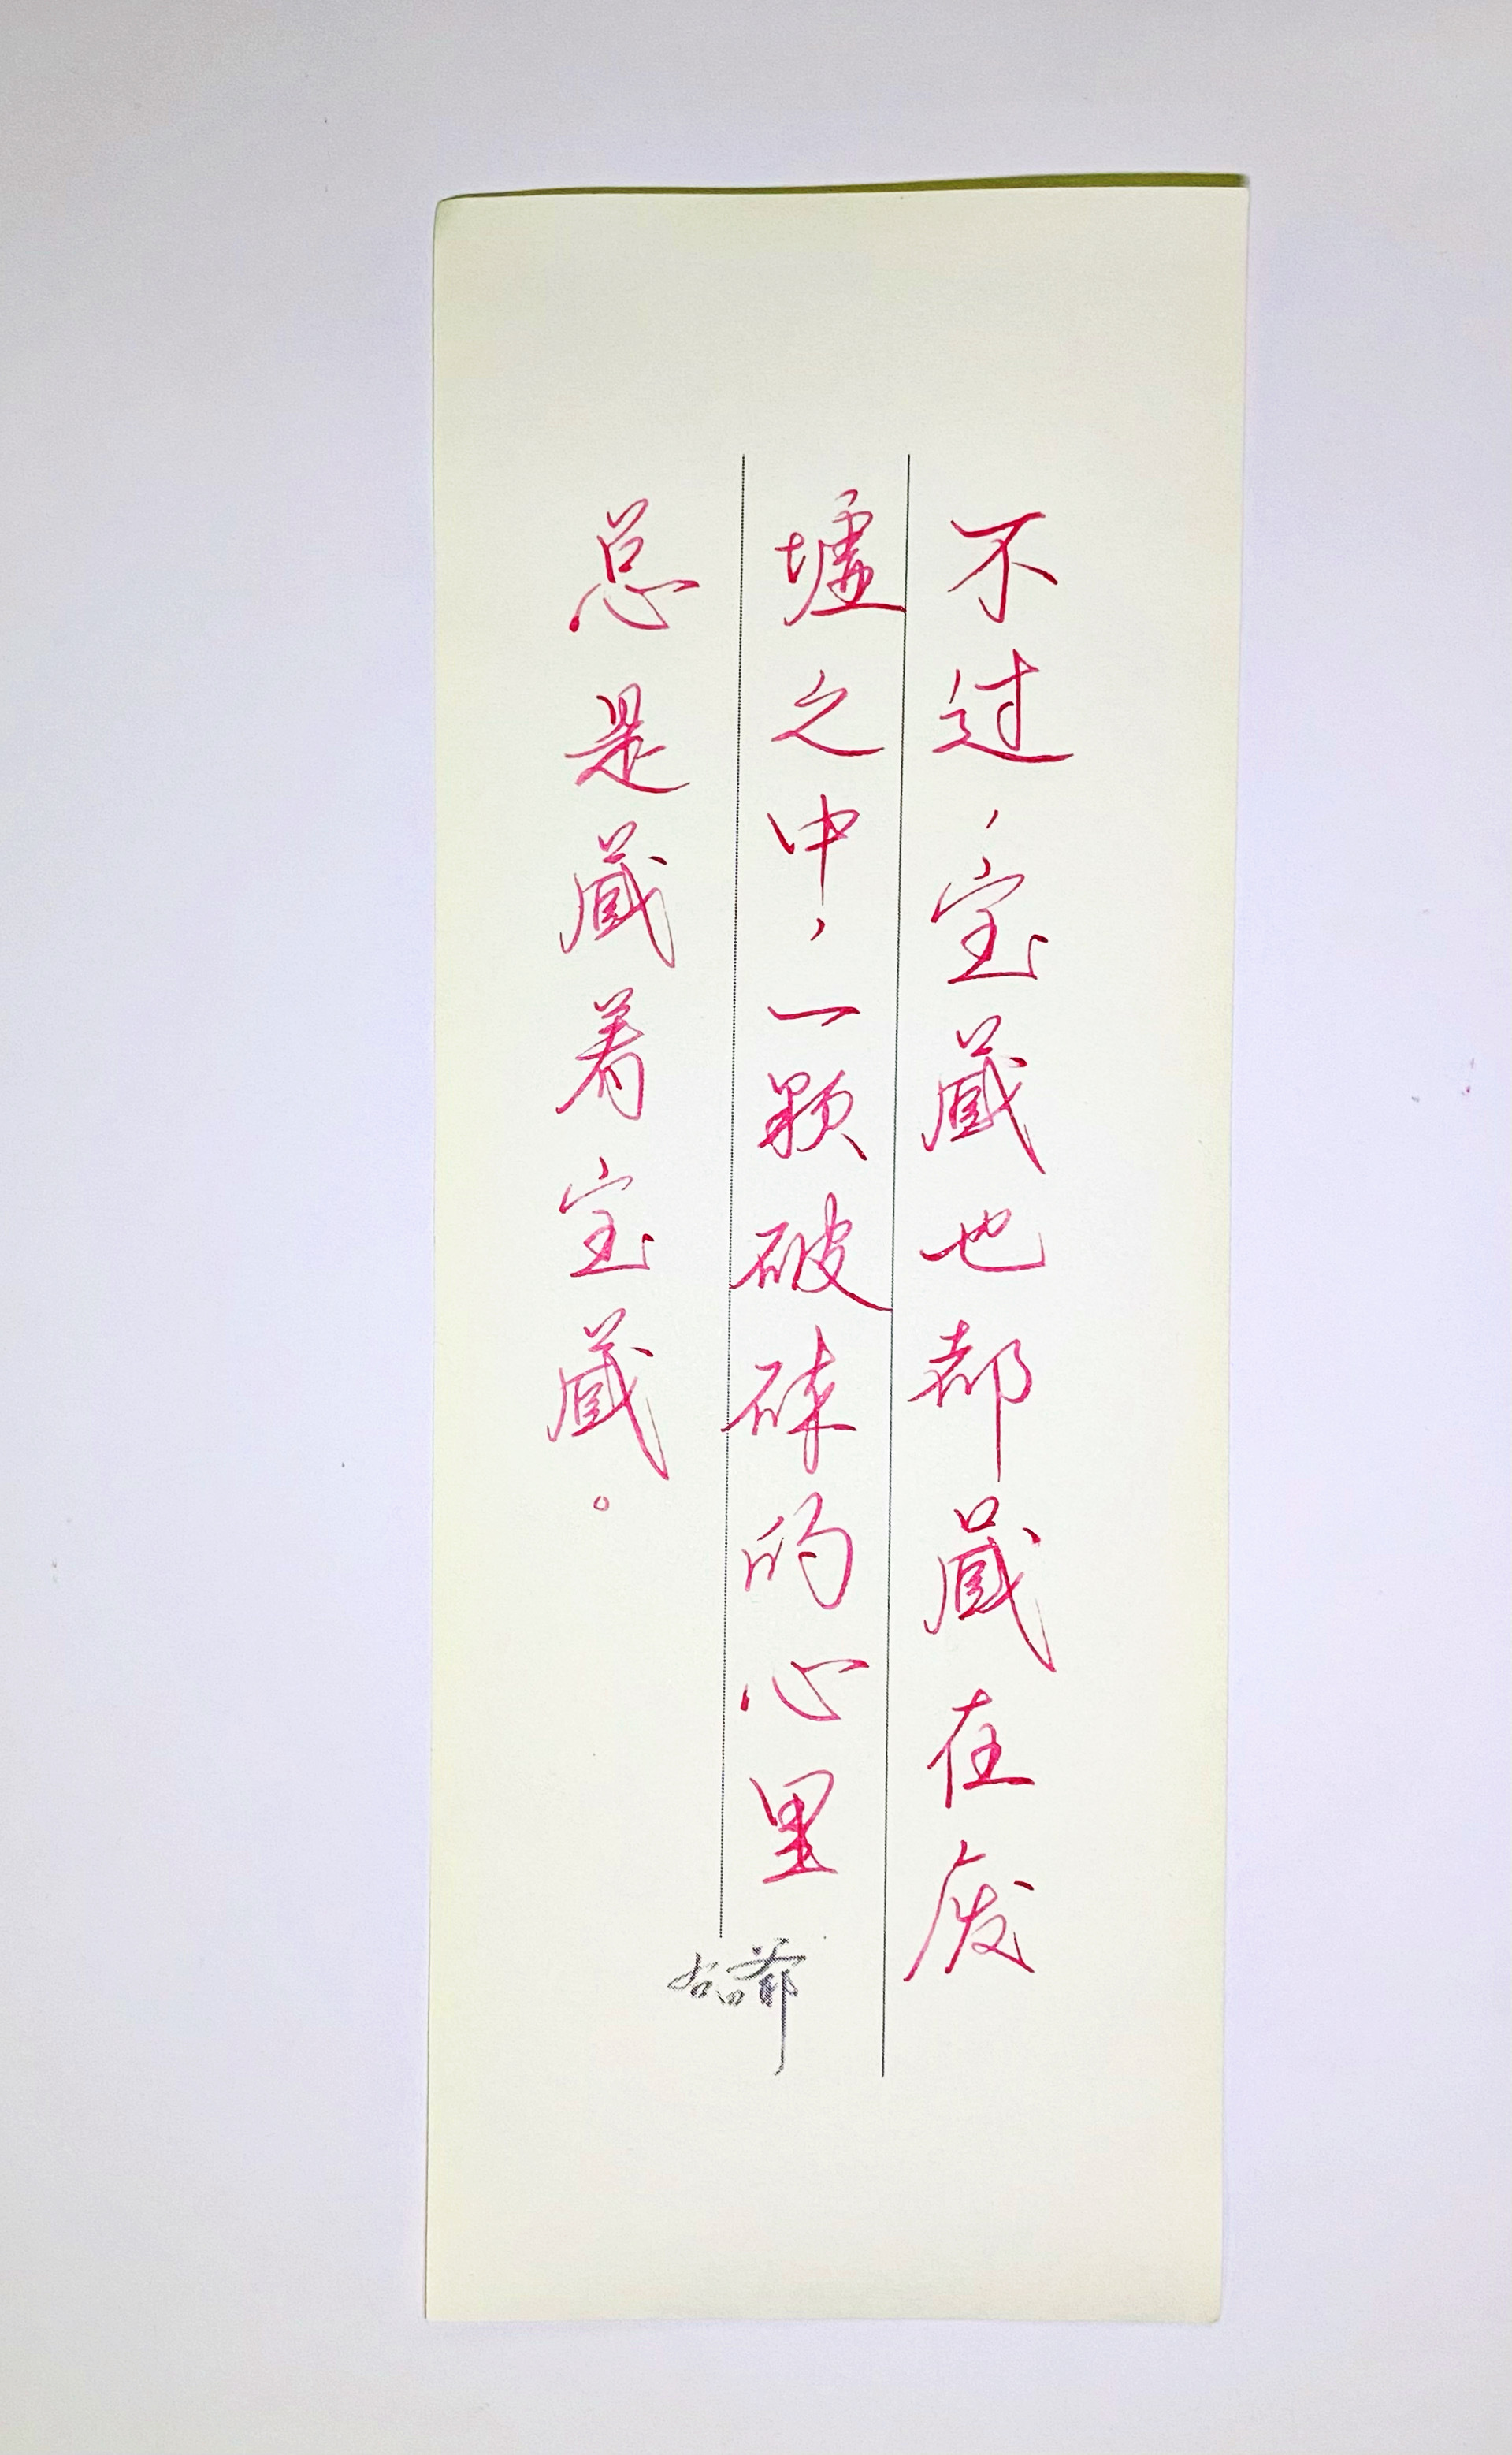 不过，宝藏也都藏在废
墟之中，一颗破碎的心里
总是藏着宝藏。